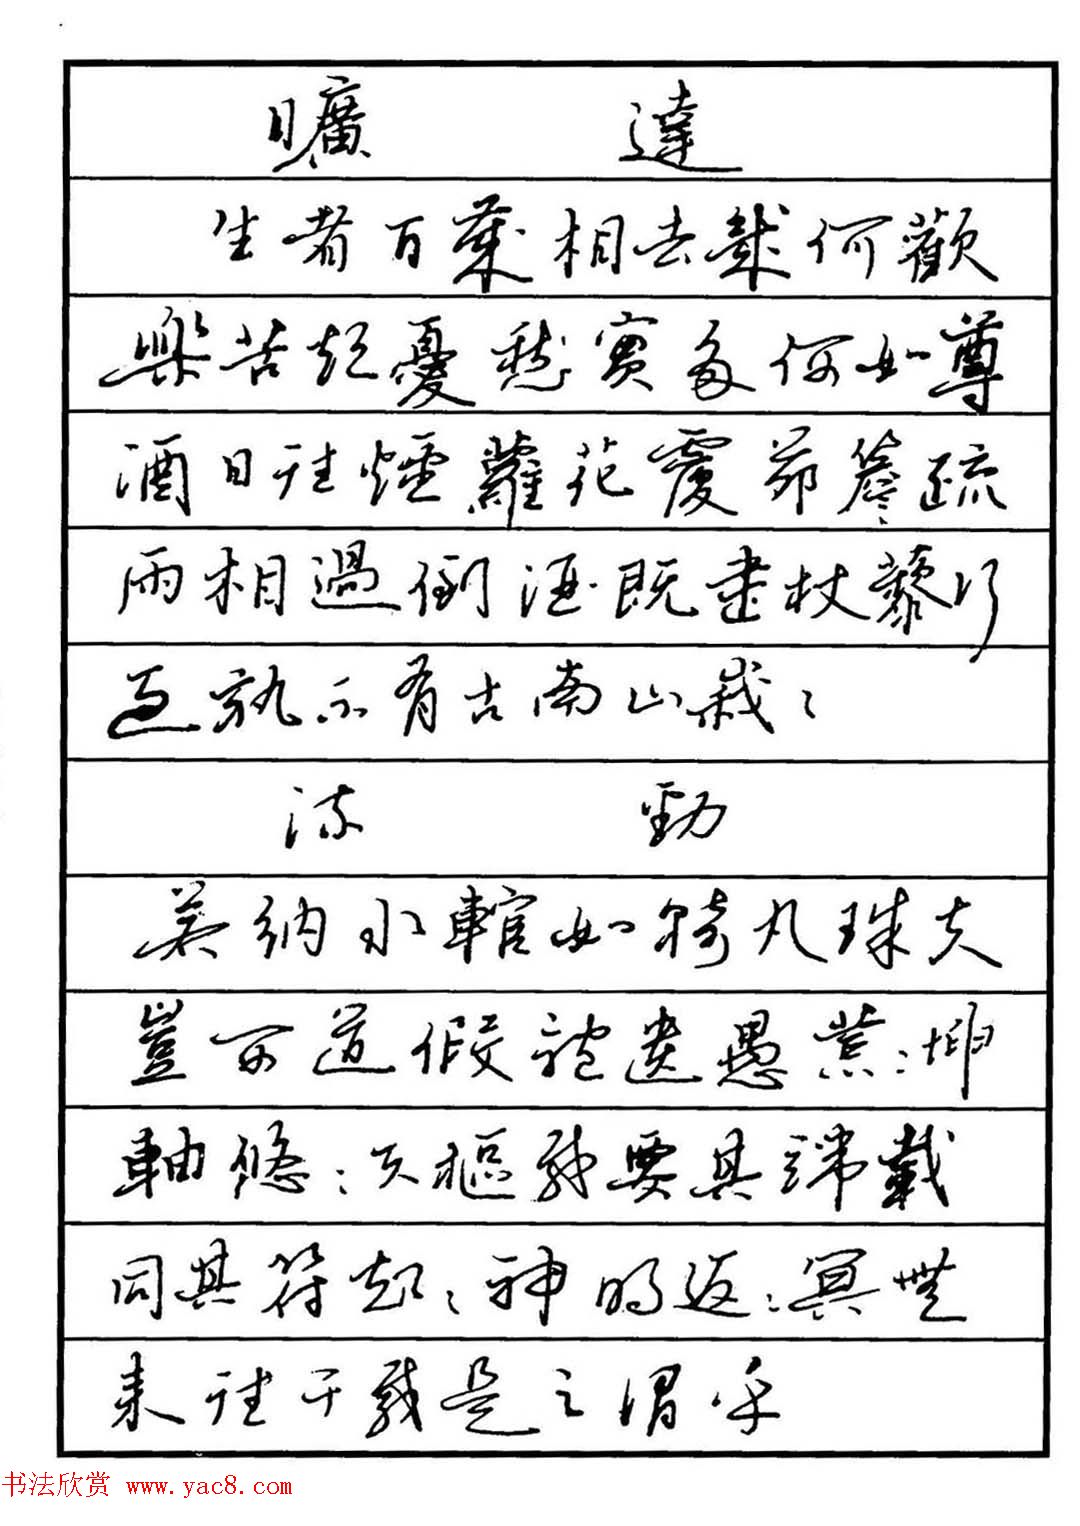 曠達
生者百歲相去幾何歡
樂苦短憂愁實多何如尊
酒日往煙蘿花覆茆簷疏
雨相過倒酒既盡杖藜行
過孰不有古南山峩〻
流動
若納水輨如轉丸珠夫
豈可道假體遺愚荒〻坤
軸悠〻天樞載要其端載
同其符超〻神明返〻冥無
來往千載是之謂乎
书法欣赏 www.yac8.com